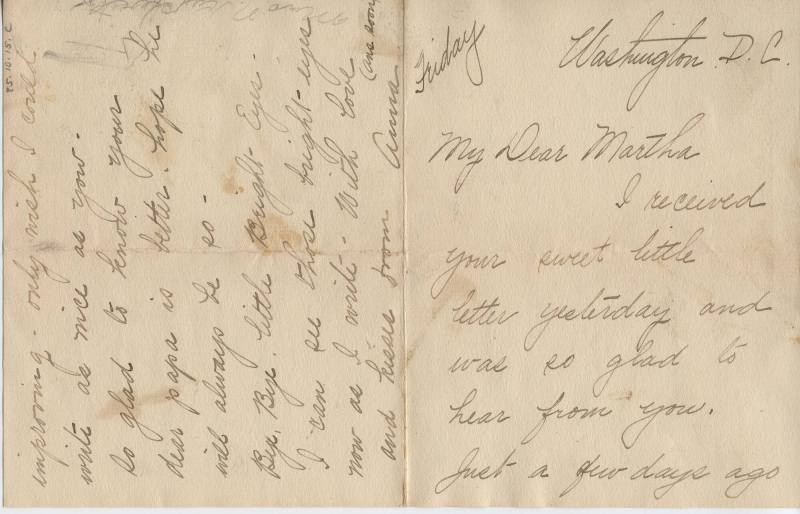 Friday
Washington D.C.
My Dear Martha
I received
your sweet little
letter yesterday and
was so glad to
hear from you.
Just a few days ago
improving - only wish I could
write as nice as you -
So glad to know your
dear papa is better. hope he
will always be so -
Bye, Bye. little Bright-Eyes -
I can see those bright-eyes
now as I write - With love
and kisses from Anna
25.10.15.c